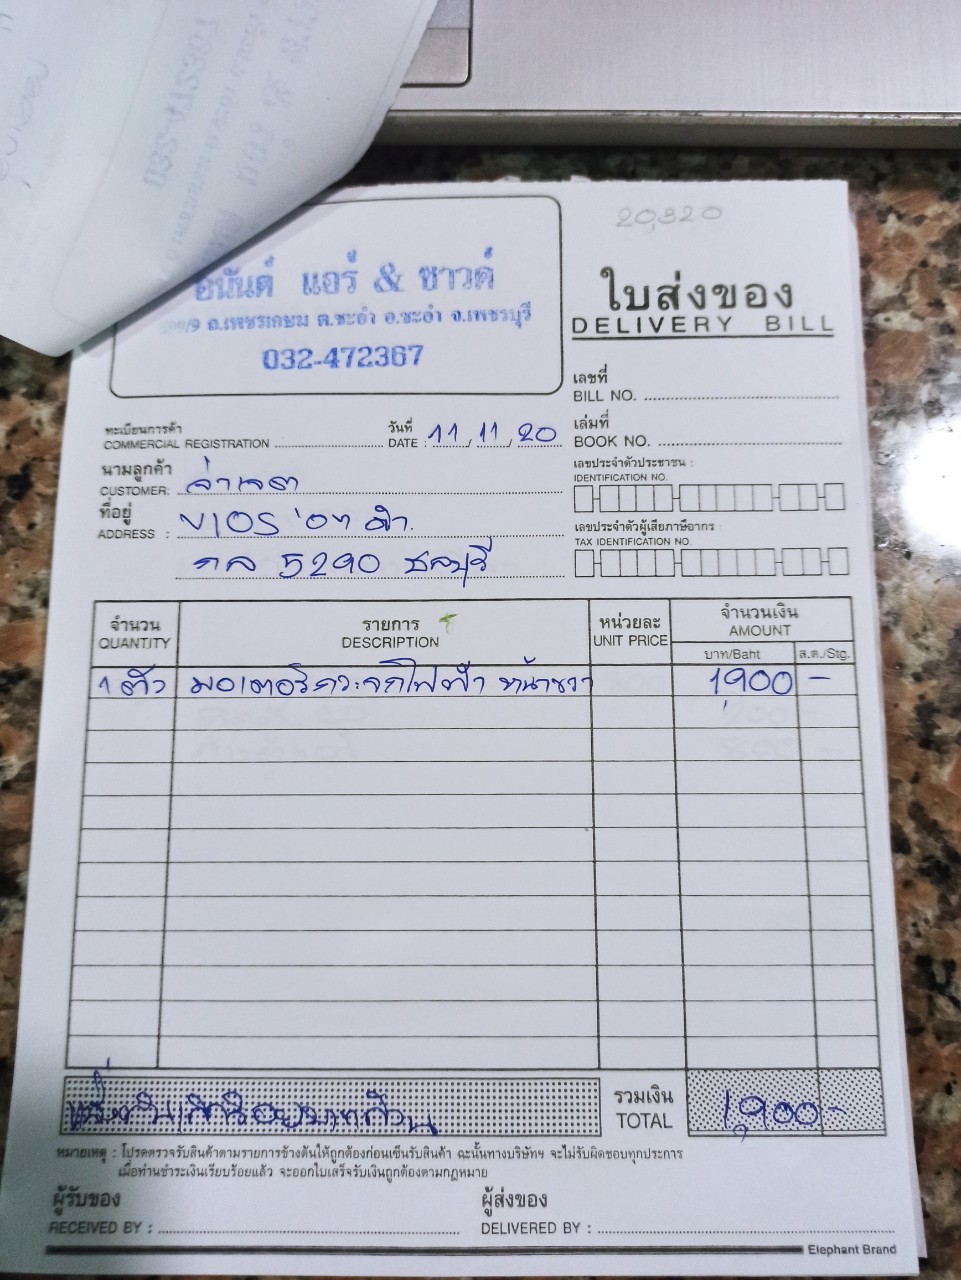 20,320
อนันต์ แอร์ & ซาวด์
/9 ถ.เพชรเกษม ต.ชะอำ อ.ชะอำ จ.เพชรบุรี
032-472367
ใบส่งของ
DELIVERY BILL
เลขที่
BILL NO.
ทะเบียนการค้า
COMMERCIAL REGISTRATION
วันที่
DATE : 11/11/20
เล่มที่
BOOK NO.
นามลูกค้า
CUSTOMER: จ่าเจต
เลขประจำตัวประชาชน :
IDENTIFICATION NO.
ที่อยู่
ADDRESS : VIOS ดำ.
กล 5290 ชลบุรี
เลขประจำตัวผู้เสียภาษีอากร :
TAX IDENTIFICATION NO.
จำนวน
QUANTITY
รายการ
DESCRIPTION
หน่วยละ
UNIT PRICE
จำนวนเงิน
AMOUNT
บาท/Baht
ส.ต./Stg.
1 ตัว มอเตอร์กระจกไฟฟ้า หน้าขวา 1,900 -
หนึ่งพันเก้าร้อยบาทถ้วน
รวมเงิน
TOTAL
1,900-
หมายเหตุ : โปรดตรวจรับสินค้าตามรายการข้างต้นให้ถูกต้องก่อนเซ็นรับสินค้า ฉะนั้นทางบริษัทฯ จะไม่รับผิดชอบทุกประการ
เมื่อท่านชำระเงินเรียบร้อยแล้ว จะออกใบเสร็จรับเงินถูกต้องตามกฎหมาย
ผู้รับของ
RECEIVED BY :
ผู้ส่งของ
DELIVERED BY :
Elephant Brand